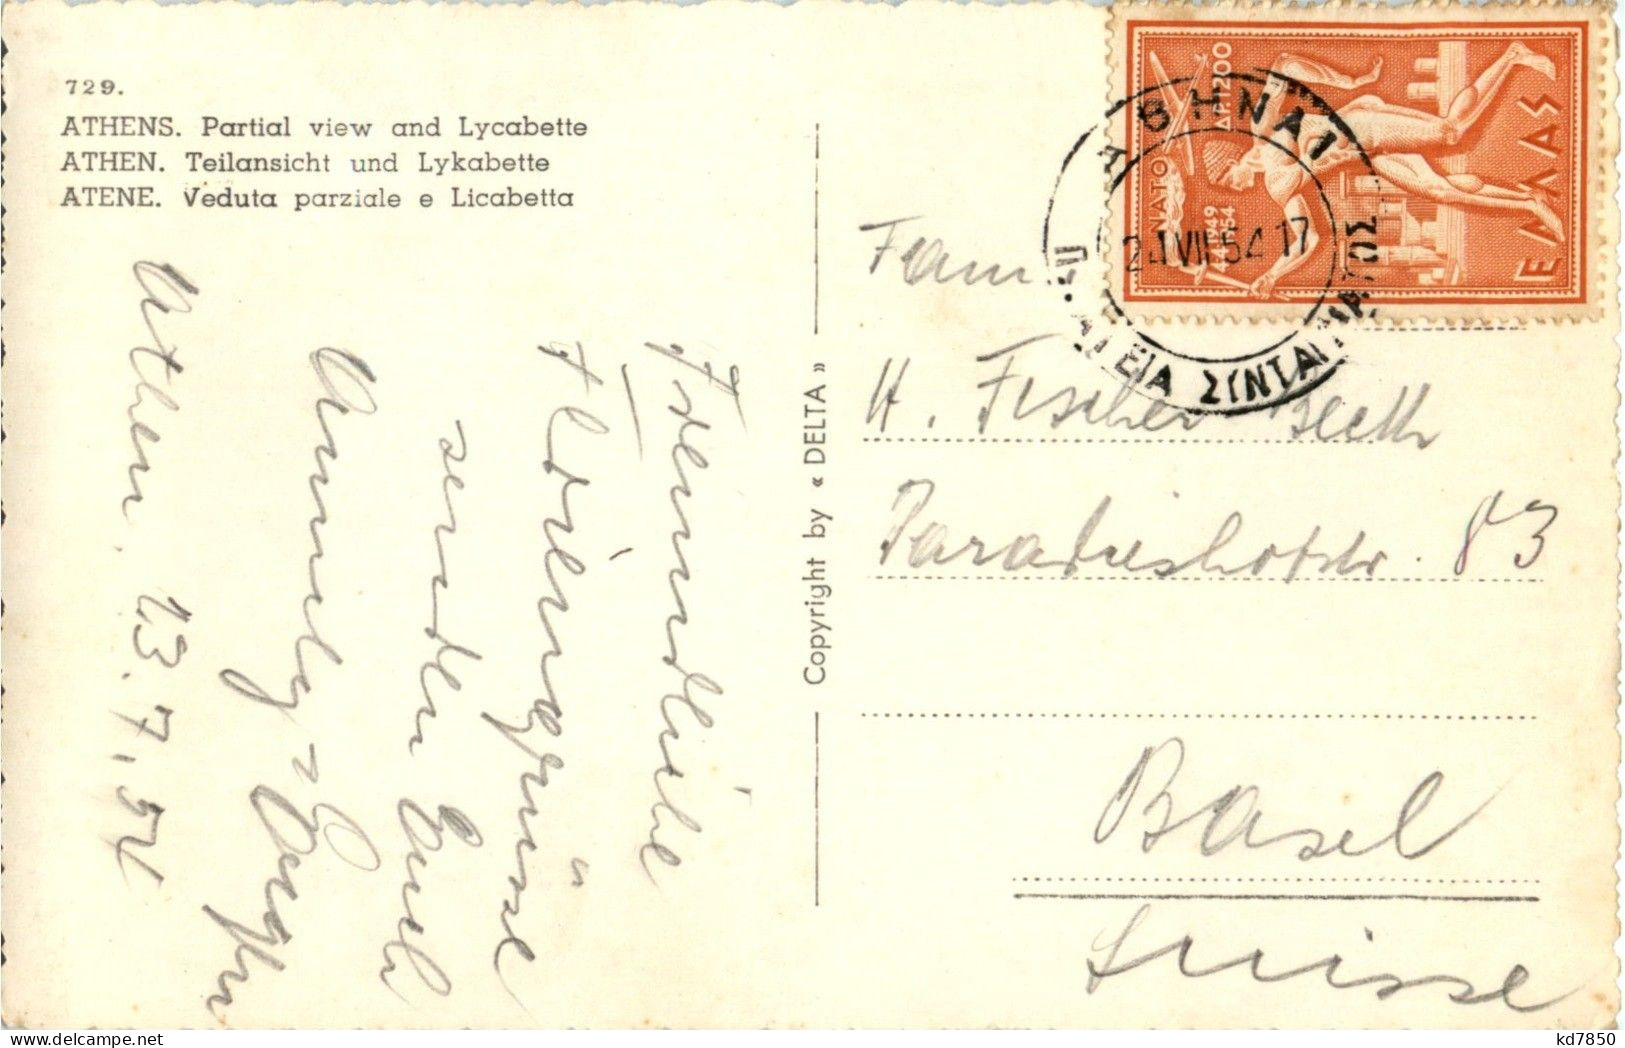 729.
ATHENS. Partial view and Lycabette
ATHEN. Teilansicht und Lykabette
ATENE. Veduta parziale e Licabetta
Athen. 23.7.54
Freundliche
Feriengrüsse
senden Euch
Annely
Copyright by « DELTA »
NATO
4·4·1949
1954
ΔΡ.1200
ΕΛΛΑΣ
ΑΘΗΝΑΙ
24 VII 54 17
ΠΛΑΤΕΙΑ ΣΥΝΤΑΓΜΑΤΟΣ
Fam
H. Fischer
Paradieshofstr. 83
Basel
Suisse
kd7850